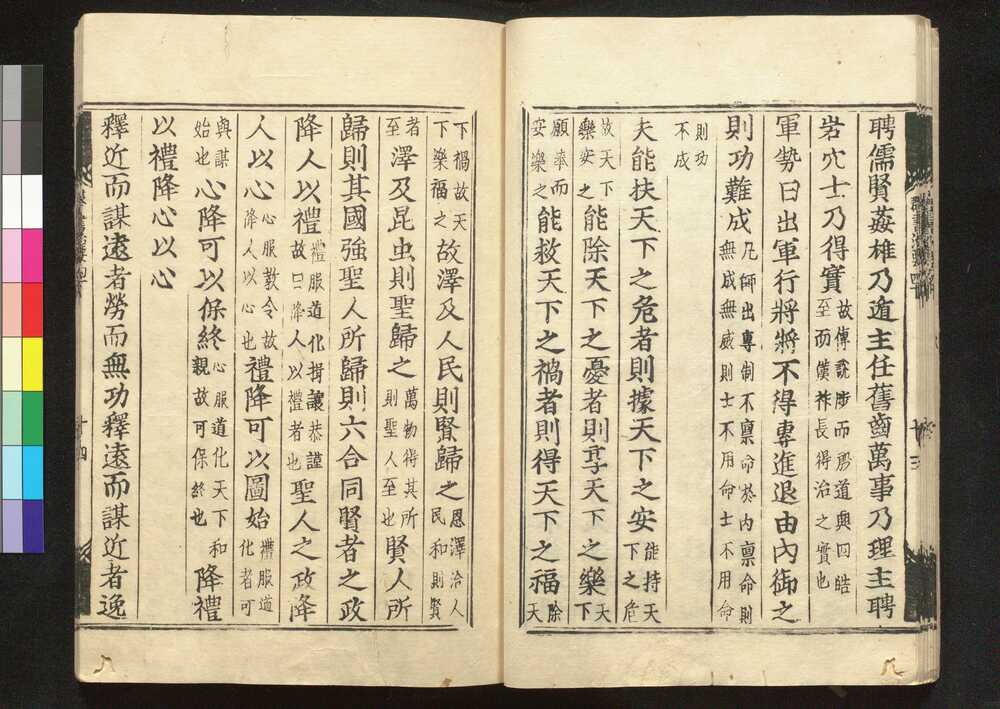 聘儒賢姦雄乃遁主任舊齒萬事乃理主聘
岩穴士乃得實故傳說陟而殷道興四皓至而漢祚長得治之實也
軍勢曰出軍行將將不得專進退由內御之
則功難成凡師出專制不禀命於內禀命則無成無威則士不用命士不用命
則功不成
夫能扶天下之危者則據天下之安能持天下之危
故天下樂安之能除天下之憂者則享天下之樂天下
願奉而安樂之能救天下之禍者則得天下之福除天
下禍故天下樂福之故澤及人民則賢歸之恩澤洽人民和則賢
者至澤及昆虫則聖歸之萬物得其所則聖人至也賢人所
歸則其國強聖人所歸則六合同賢者之政
降人以禮禮服道化揖讓恭謹故曰降人以禮者也聖人之政降
人以心心服教令故降人人以心也禮降可以圖始禮服道化者可
與謀始也心降可以保終心服道化天下和親故可保終也降禮
以禮降心以心
釋近而謀遠者勞而無功釋遠而謀近者逸